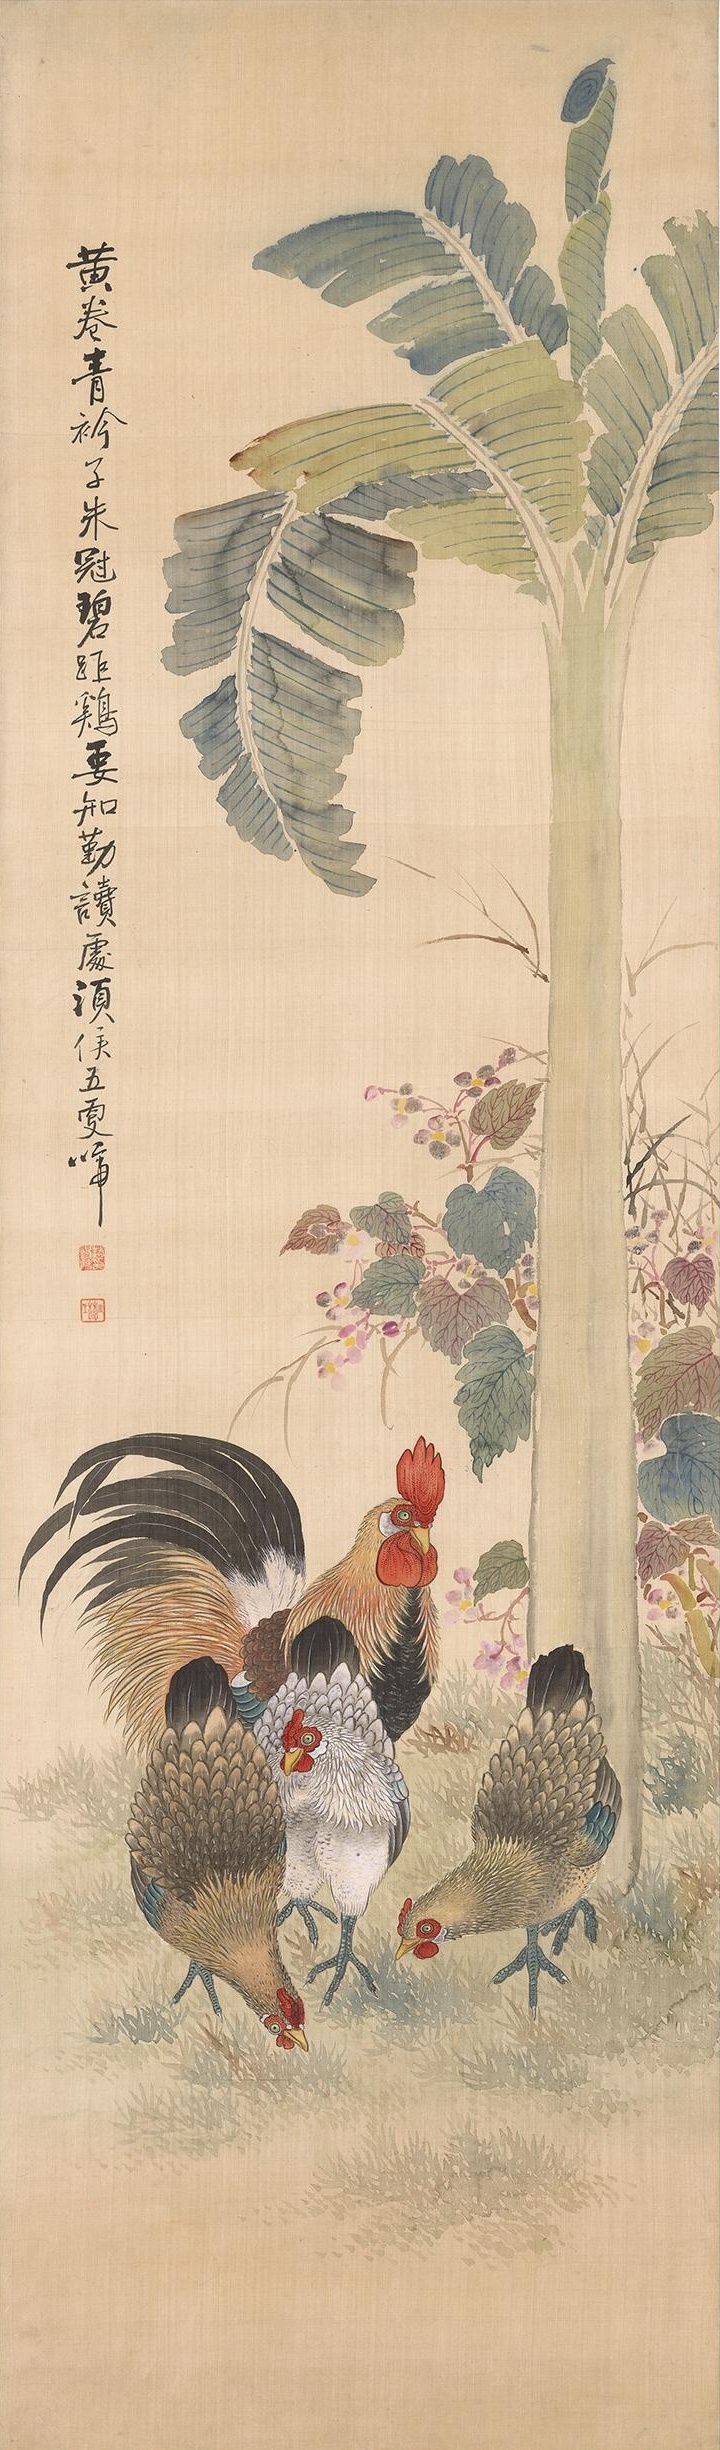 黄卷青衿子朱冠碧距鷄要知勤讀處須俟五更啼